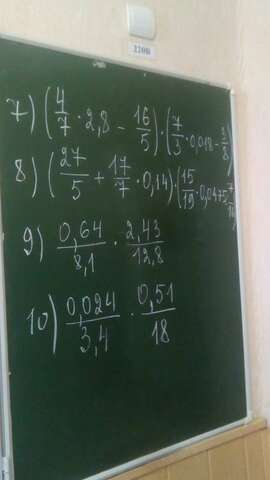 220В
7) (4/7 · 2,8 - 16/5) · (7/3 · 0,018 - 3/8)
8) (27/5 + 17/7 · 0,14) · (15/19 · 0,0475
9) 0,64/8,1 · 2,43/12,8
10) 0,024/3,4 · 0,51/18